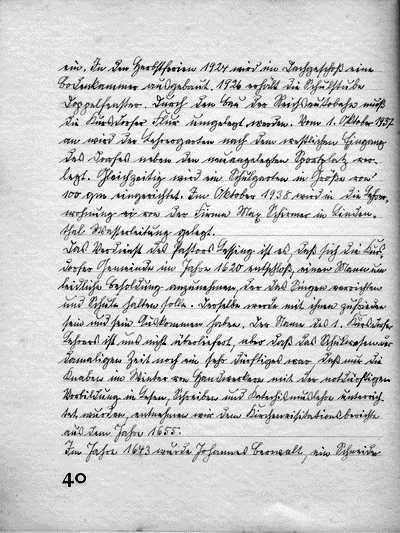 ein. In den Herbstferien 1924 wird im Dachgeschoß eine
Bodenkammer ausgebaut. 1926 erhält die Schulstube
Doppelfenster. Durch den Bau der Reichsautobahn muß
die Kursdorfer Flur umgelegt werden. Vom 1. Oktober 1937
an wird der Lehrergarten nach dem westlichen Eingang
des Dorfes neben den neuangelegten Sportplatz ver-
legt. Gleichzeitig wird ein Schulgarten in Größe von
100 qm eingerichtet. Im Oktober 1938 wird in die Lehrer-
wohnung von der Firma Max Schermer in Linden-
thal Wasserleitung gelegt.
Das Verdienst des Pastors Lessing ist es, daß sich die Kurs-
dorfer Gemeinde im Jahre 1620 entschloß, einen Mann um
leidliche Besoldung anzunehmen, der das Singen verrichten
und Schule halten solle. Derselbe werde mit ihnen zufrieden
sein und sein Auskommen haben. Der Name des 1. Kursdorfer
Lehrers ist uns nicht überliefert, aber daß das Schulwesen zur
damaligen Zeit noch ein sehr dürftiges war, daß nur die
Knaben im Winter von Handwerkern mit der notdürftigen
Vorbildung in Lesen, Schreiben und Katechismuslehre unterrich-
tet wurden, entnehmen wir dem Kirchenvisitationsberichte
aus dem Jahre 1655.
Im Jahre 1643 wurde Johannes Berwalt, ein Schneider
40